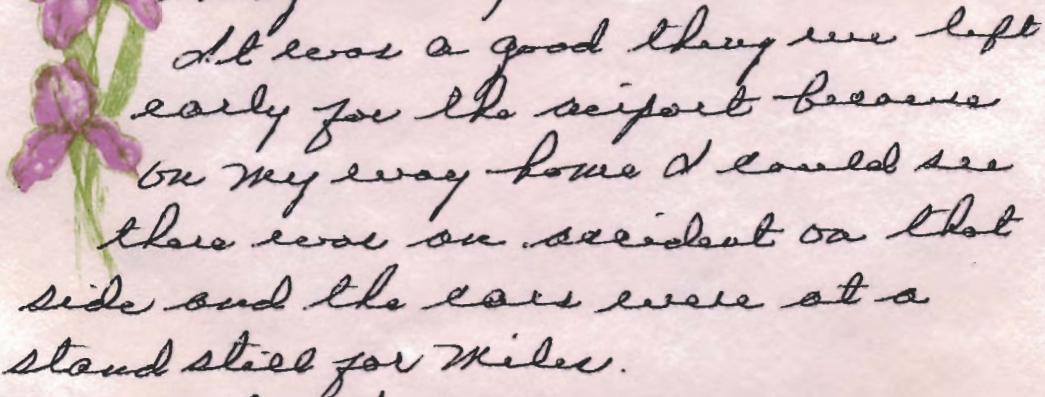 It was a good thing we left
early for the airport because
on my way home I could see
there was an accident on that
side and the cars were at a
stand still for miles.